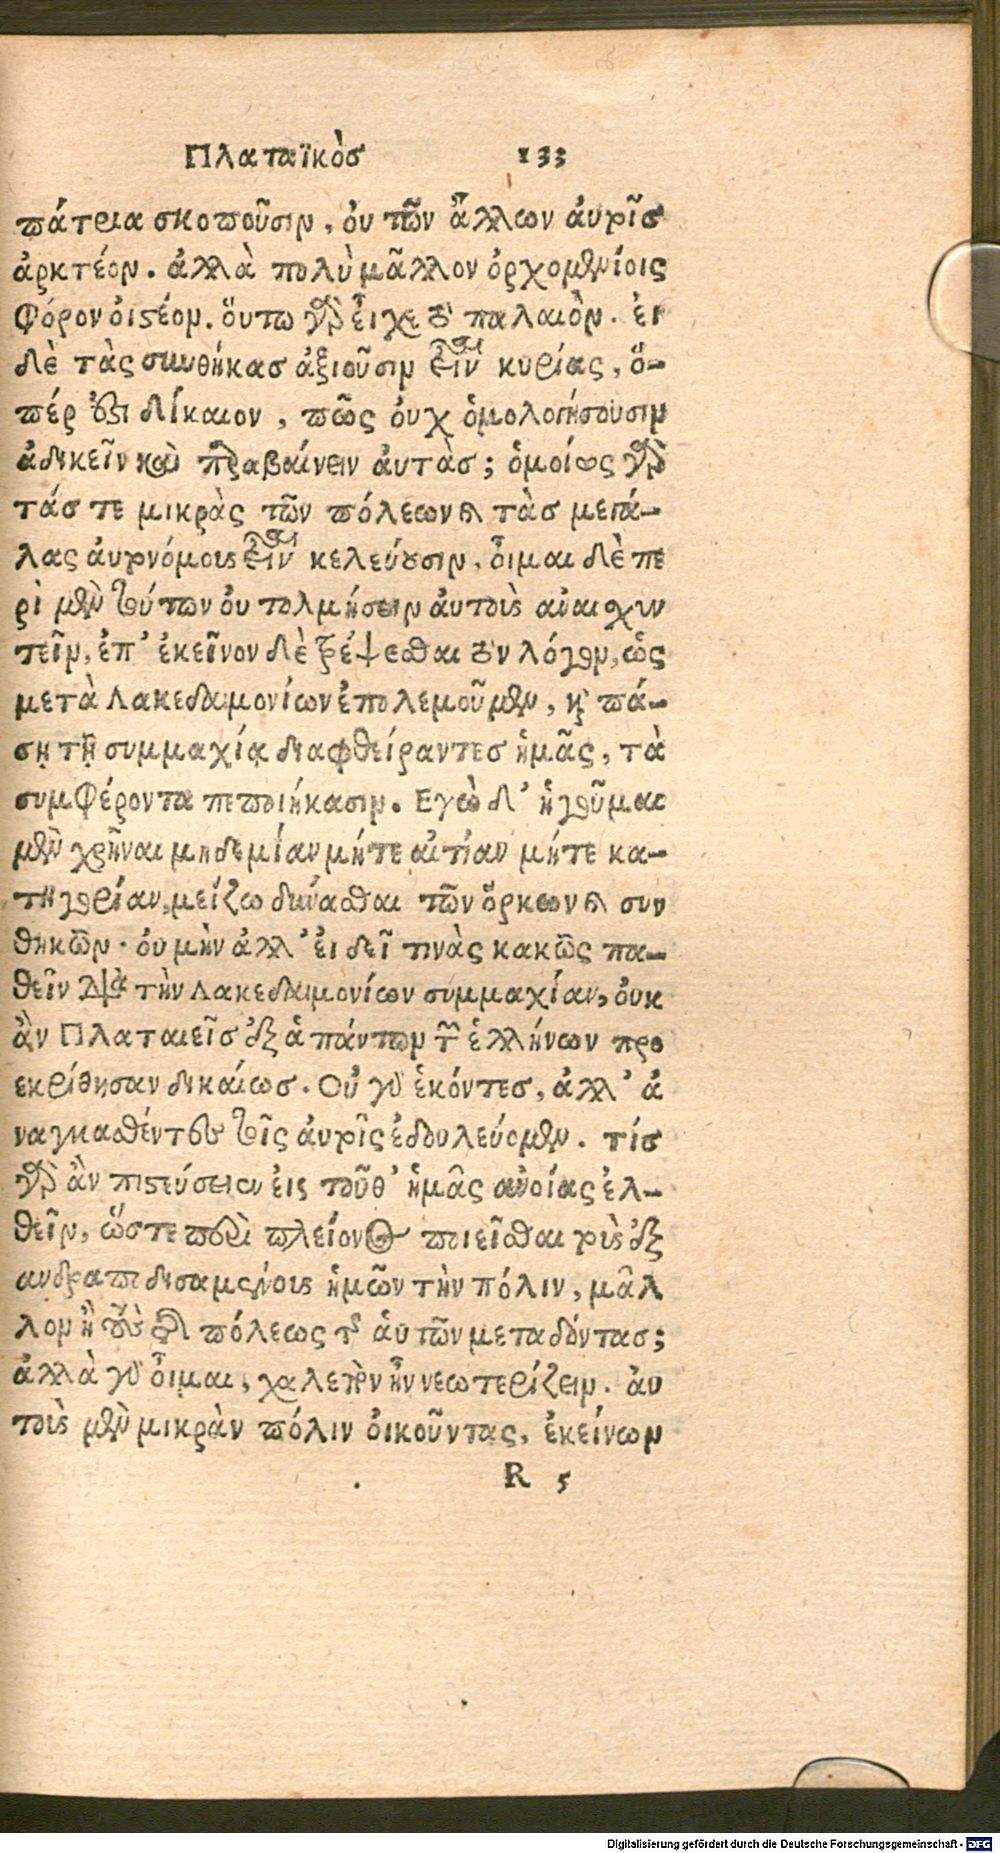 Πλαταϊκὸσ 133
πάτρια σκοποῦσιν, ὀυ τῶν ἄλλων ἀυτοῖσ
ἀρκτέον. ἀλλὰ πολὺ μᾶλλον ὀρχομενίοις
φόρον ὀιστέον. ὅυτω γὰρ ἔιχε τὸ παλαιὸν. ἐι
δὲ τὰς συνθήκασ ἀξιοῦσιν εἶναι κυρίας, ὅ-
πέρ ἐστι δίκαιον, πῶς ὀυχ ὁμολογήσουσιν
ἀδικεῖν καὶ παραβαίνειν ἀυτὰσ; ὁμοίως γὰρ
τάσ τε μικρὰς τῶν πόλεων καὶ τὰσ μεγά-
λας ἀυτονόμους εἶναι κελεύουσιν. ὀῖμαι δὲ πε
ρὶ μὲν τούτων ὀυ τολμήσειν ἀυτοὺς ἀναισχυν
τεῖν, ἐπ' ἐκεῖνον δὲ τρέψεσθαι τὸν λόγον, ὡς
μετὰ Λακεδαιμονίων ἐπολεμοῦμεν, καὶ πά-
σῃ τῇ συμμαχίᾳ διαφθείραντεσ ἡμᾶς, τὰ
συμφέροντα πεποιήκασιν. Εγὼ δ' ἡγοῦμαι
μὲν χρῆναι μηδεμίαν μήτε αἰτίαν μήτε κα-
τηγορίαν, μείζω δύνασθαι τῶν ὅρκων καὶ συν
θηκῶν. ὀυ μὴν ἀλλ' ἐι δεῖ τινὰς κακῶς πα-
θεῖν διὰ τὴν Λακεδαιμονίων συμμαχίαν, ὀυκ
ἂν Πλαταιεῖσ ἐξ ἁπάντων τῶν ἑλλήνων προ
εκρίθησαν δικαίωσ. Οὐ γὰρ ἑκόντεσ, ἀλλ' ἀ
ναγκασθέντες τοῖς ἀυτοῖς ἐδουλεύομεν. τίσ
γὰρ ἂν πιστεύσειεν ἐις τοῦθ' ἡμᾶς ἀνοίας ἐλ-
θεῖν, ὥστε περὶ πλείονος ποιεῖσθαι τοὺς ἐξ
ανδραποδισαμένους ἡμῶν τὴν πόλιν, μᾶλ
λον ἢ τοὺς τῆς πόλεως τῆς ἁυτῶν μεταδόντασ;
ἀλλὰ γὰρ ὀῖμαι, χαλεπὸν ἦν νεωτερίζειν. ἀυ
τοὺς μὲν μικρὰν πόλιν ὀικοῦντας, ἐκείνων
R 5
Digitalisierung gefördert durch die Deutsche Forschungsgemeinschaft - DFG